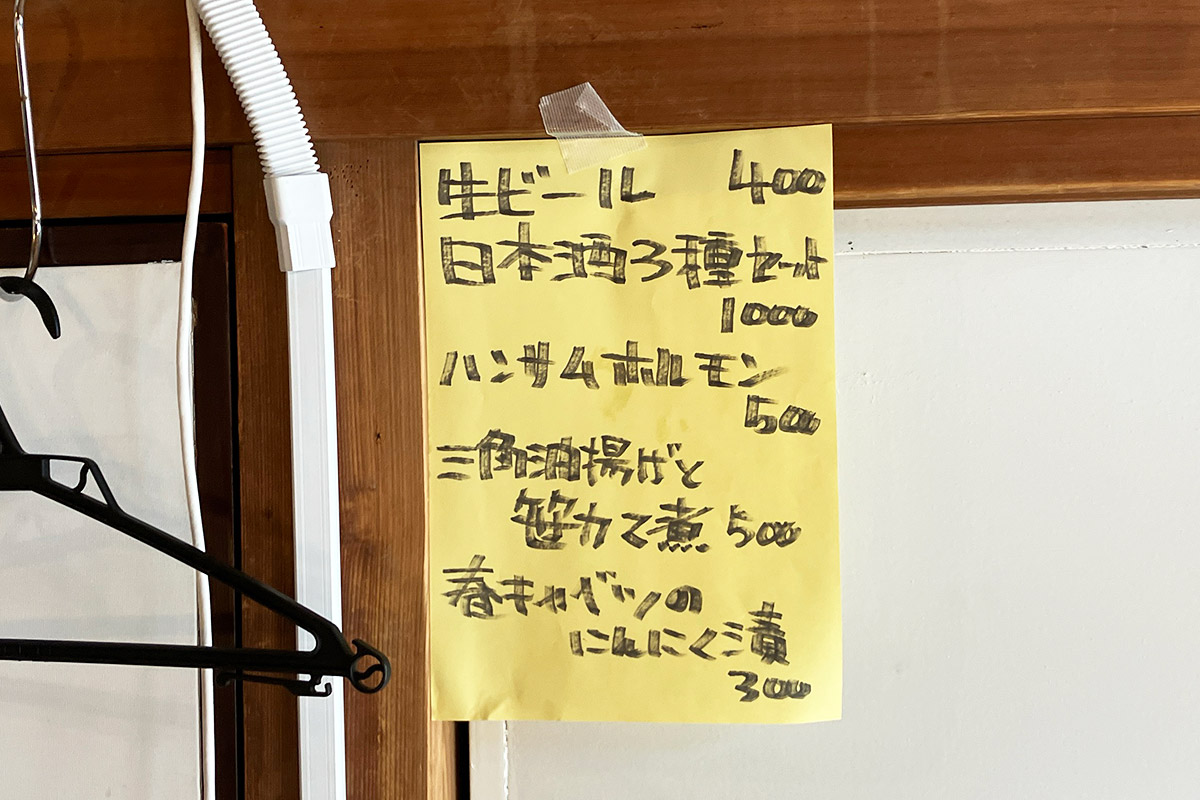 生ビール 400
日本酒3種セット
1000
ハンサムホルモン
500
三角油揚げと
笹カマ煮 500
春キャベツの
にんにく漬
300